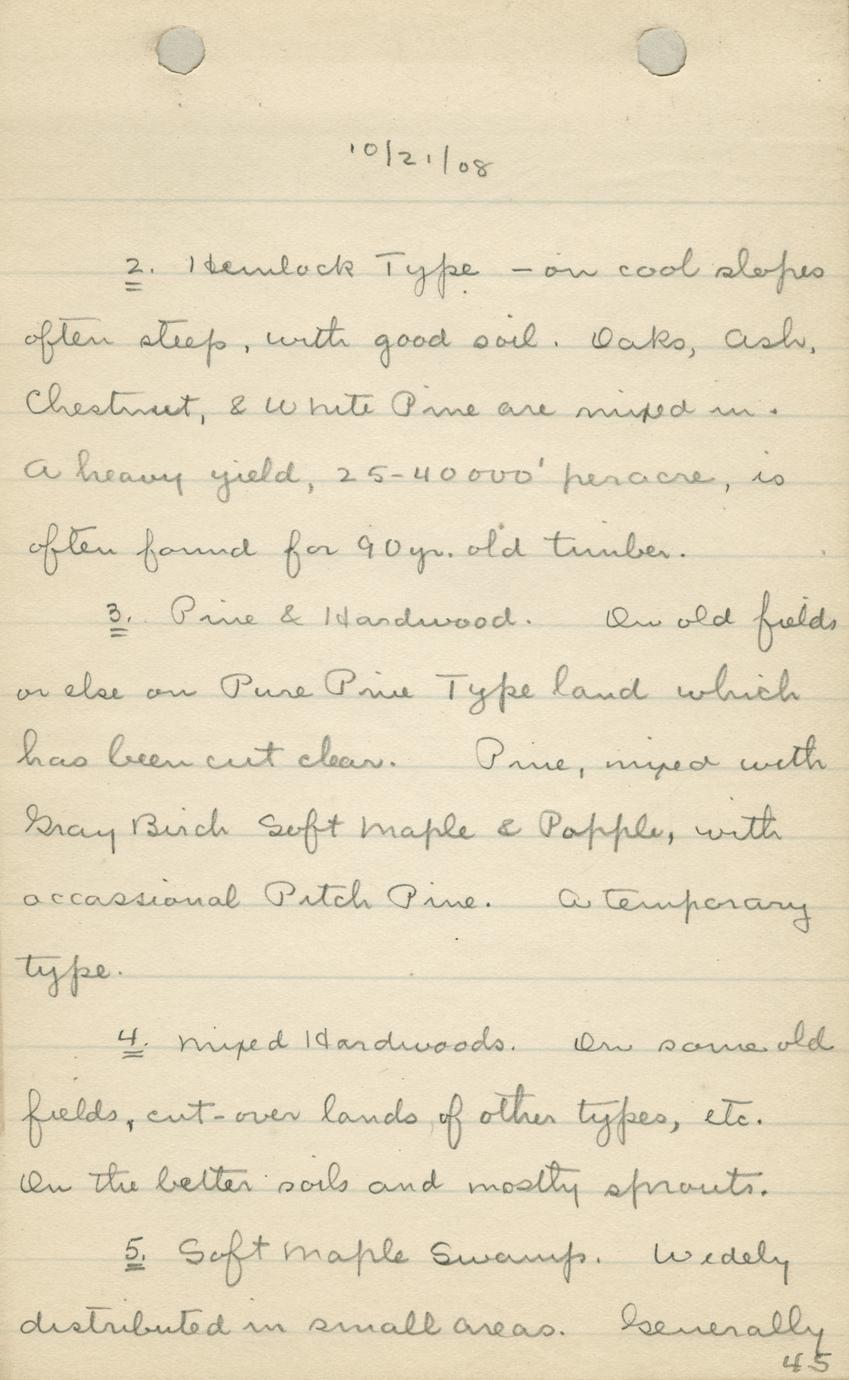 10/21/08
2. Hemlock Type – on cool slopes
often steep, with good soil. Oaks, Ash,
Chestnut, & White Pine are mixed in.
A heavy yield, 25-40000' per acre, is
often found for 90 yr. old timber.
3. Pine & Hardwood. On old fields
or else on Pure Pine Type land which
has been cut clear. Pine, mixed with
Gray Birch Soft Maple & Popple, with
occassional Pitch Pine. A temporary
type.
4. Mixed Hardwoods. On some old
fields, cut-over lands of other types, etc.
On the better soils and mostly sprouts.
5. Soft Maple Swamp. Widely
distributed in small areas. Generally
45